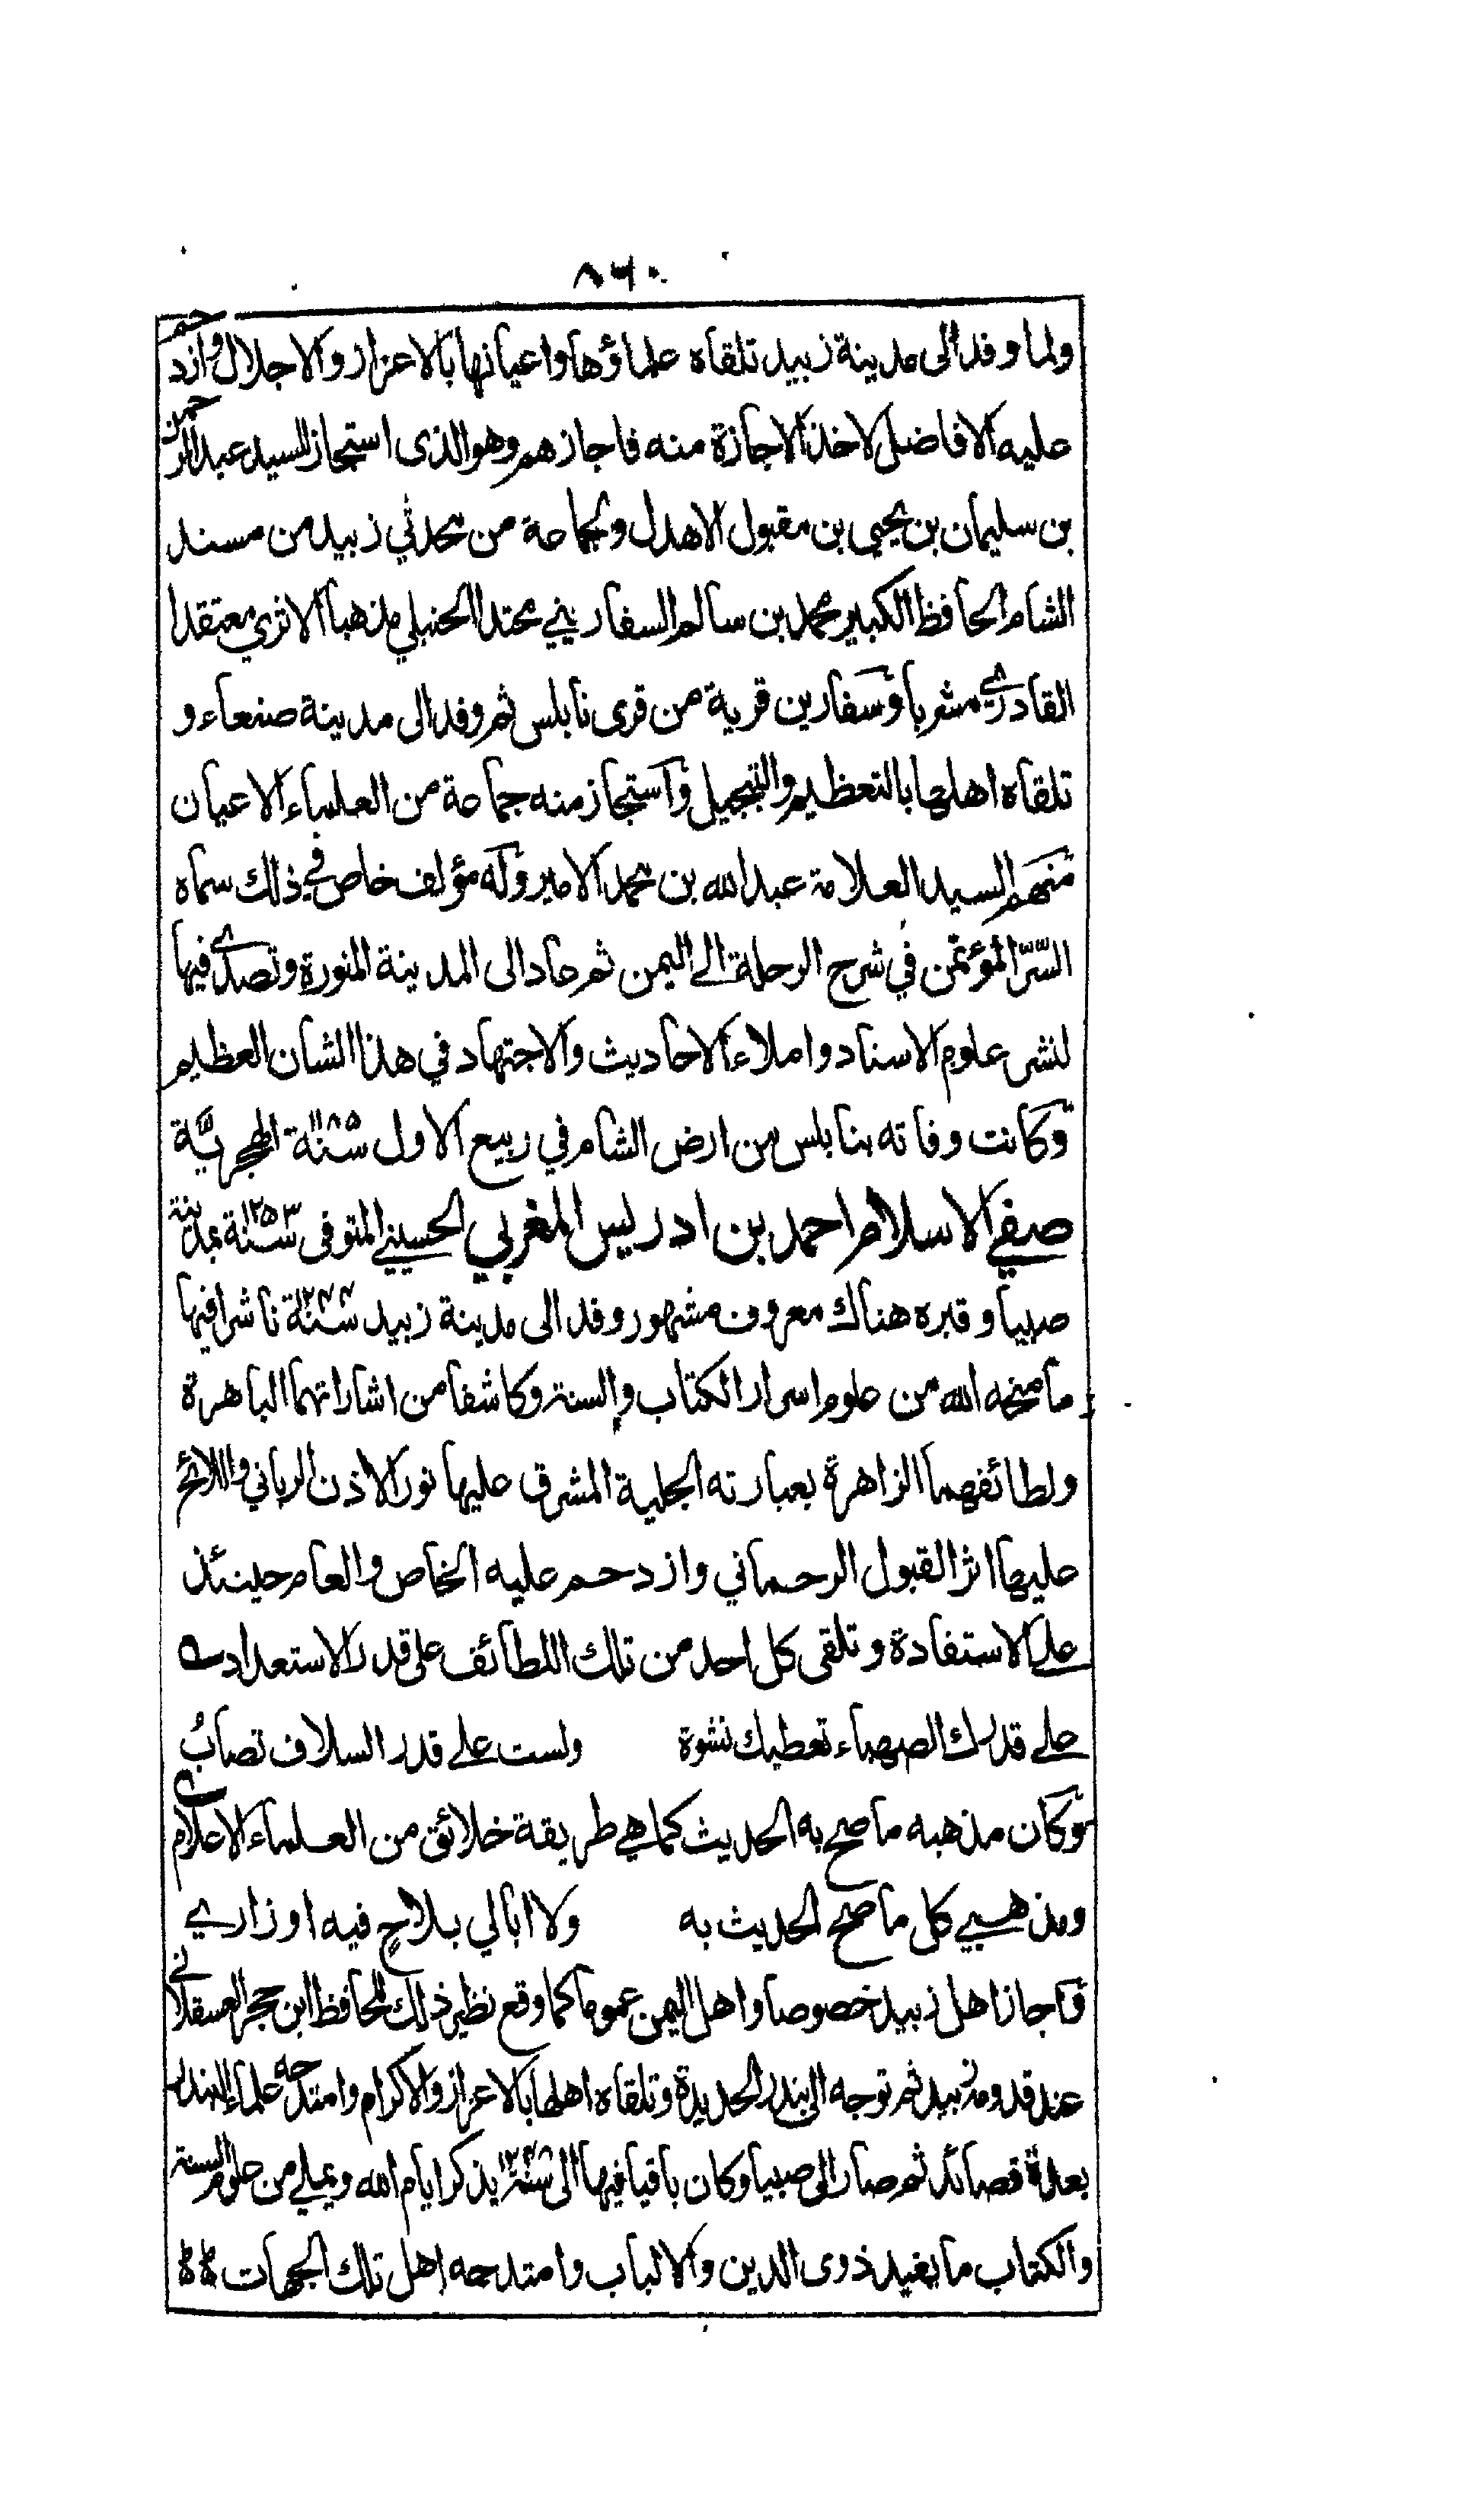 ٨٦٠
ولما وفد الى مدينة زبيد تلقاه علماؤها واعيانها بالاعزاز والاجلال وازدحم
عليه الافاضل لاخذ الاجازة منه فاجازهم وهو الذى استجاز للسيد عبدالرحمن
بن سليمان بن يحيى بن مقبول الاهدل ولجماعة من محدثي زبيد من مسند
الشام الحافظ الكبير محمد بن سالم السفاريني محتدا الحنبلي مذهبا الاثري معتقدا
القادري مشربا وسفارين قرية من قرى نابلس ثم وفد الى مدينة صنعاء و
تلقاه اهلها بالتعظيم والتبجيل واستجاز منه جماعة من العلماء الاعيان
منهم السيد العلامة عبدالله بن محمد الامير وله مؤلف خاص في ذلك سماه
السّرّ المؤتمن في شرح الرحلة الى اليمن ثم عاد الى المدينة المنورة وتصدى فيها
لنشر علوم الاسناد واملاء الاحاديث والاجتهاد في هذا الشان العظيم
وكانت وفاته بنابلس من ارض الشام في ربيع الاول سنة الهجريّة
صفي الاسلام احمد بن ادريس المغربي الحسيني المتوفى سنة ١٢٥٣ بمدينة
صبيا وقبره هناك معروف مشهور وفد الى مدينة زبيد سنة ١٢٤٤ ناشرا فيها
ما منحه الله من علوم اسرار الكتاب والسنة وكاشفا من اشاراتهما الباهرة
ولطائفهما الزاهرة بعبارته الجلية المشرق عليها نور الاذن الرباني واللائح
عليها اثر القبول الرحماني وازدحم عليه الخاص والعام حينئذ
على الاستفادة وتلقى كل احد من تلك اللطائف على قدر الاستعداد
على قدرك الصهباء تعطيك نشوة ولست على قدر السلاف تصابُ
وكان مذهبه ما صح به الحديث كما هي طريقة خلائق من العلماء الاعلام
ومذهبي كل ما صح الحديث به ولا ابالي بلاحٍ فيه او زاري
فاجاز اهل زبيد خصوصا واهل اليمن عموما كما وقع نظير ذلك للحافظ ابن حجر العسقلاني
عند قدومه زبيد ثم توجه الى بندر الحديدة وتلقاه اهلها بالاعزاز والاكرام وامتدحه علماء البندر
بعدة قصائد ثم صار الى صبيا وكان باقيا فيها الى سنة يذكر ايام الله ويملي من علوم السنة
والكتاب ما يفيد ذوى الدين والالباب وامتدحه اهل تلك الجهات